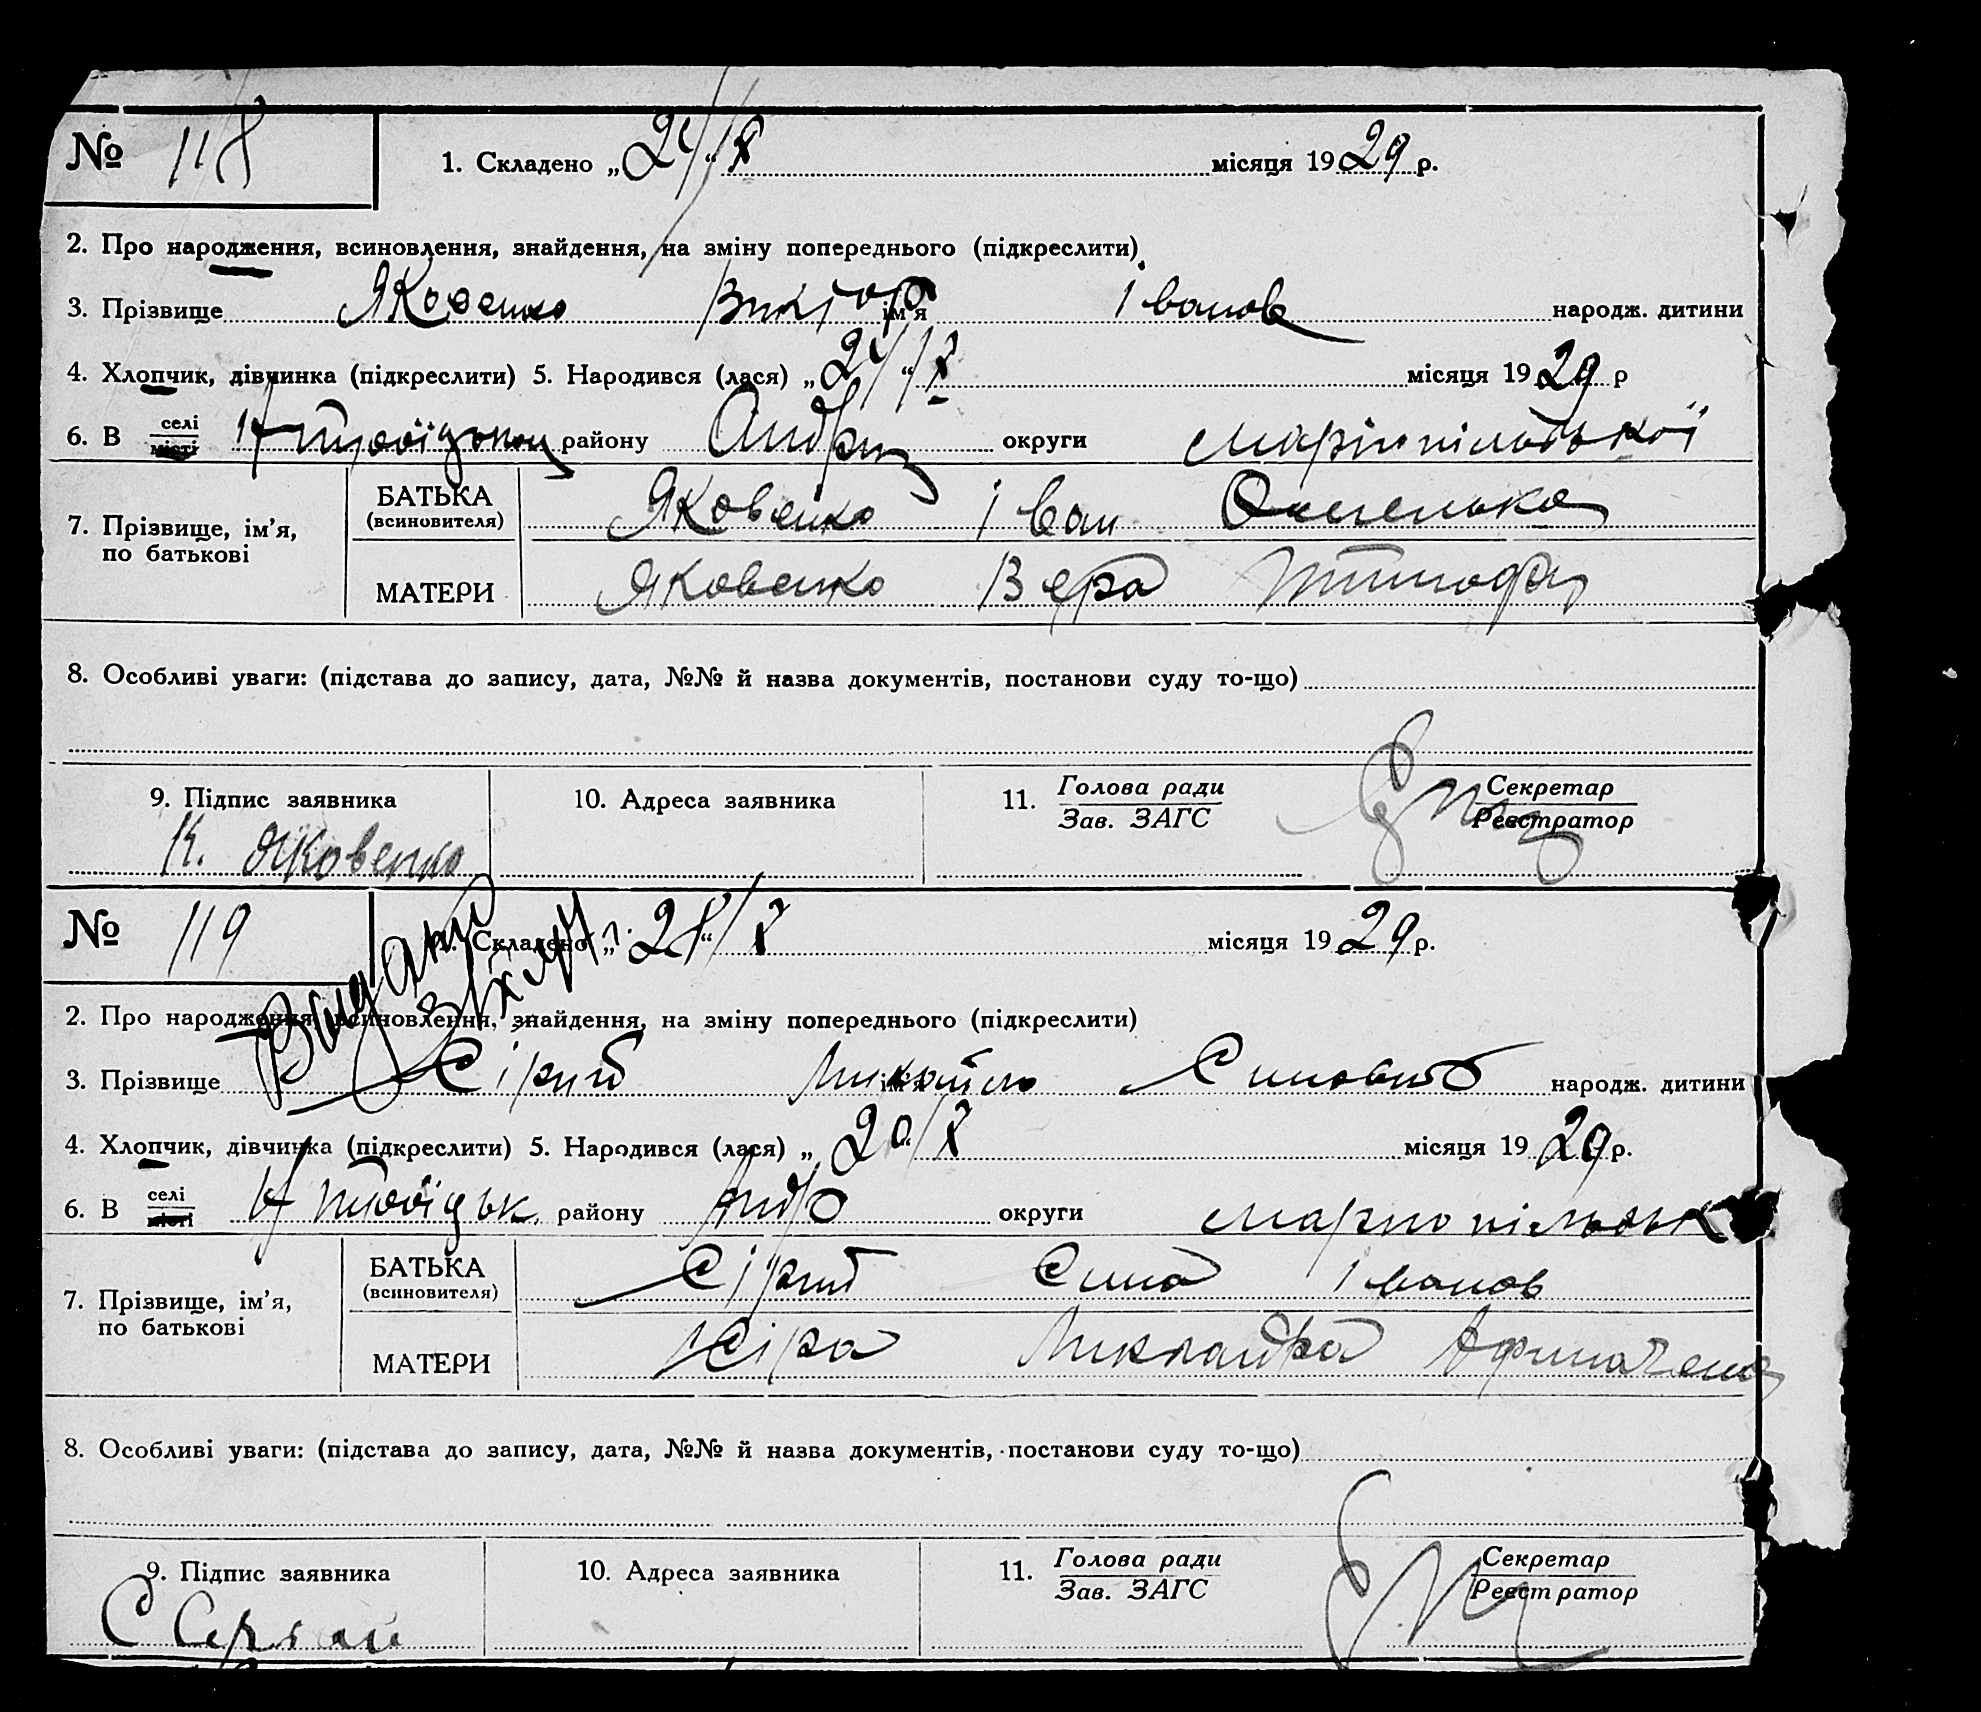 № 118 1. Складено „24/X“ місяця 1929 р.
2. Про народження, всиновлення, знайдення, на зміну попереднього (підкреслити)
3. Прізвище Яковенко Віктор ім'я Іванов народж. дитини
4. Хлопчик, дівчинка (підкреслити) 5. Народився (лася) „24/“ X місяця 1929 р
6. В селі
місті району Андр округи Маріюпільської
7. Прізвище, ім'я,
по батькові
БАТЬКА
(всиновителя)
Яковенко Іван
МАТЕРИ
Яковенко Вера Тимоф
8. Особливі уваги: (підстава до запису, дата, №№ й назва документів, постанови суду то-що)
9. Підпис заявника 10. Адреса заявника 11. Голова ради
Зав. ЗАГС
Секретар
Реєстратор
Яковенко
№ 119 1. Складено „28/“ X місяця 1929 р.
Видани
2. Про народження, всиновлення, знайдення, на зміну попереднього (підкреслити)
3. Прізвище Сірий Микайло ім'я народж. дитини
4. Хлопчик, дівчинка (підкреслити) 5. Народився (лася) „20/X місяця 1929 р.
6. В селі
місті району Андр округи Мариюпільськ
7. Прізвище, ім'я,
по батькові
БАТЬКА
(всиновителя)
Сірий Сила Іванов
МАТЕРИ
Сіра
8. Особливі уваги: (підстава до запису, дата, №№ й назва документів, постанови суду то-що)
9. Підпис заявника 10. Адреса заявника 11. Голова ради
Зав. ЗАГС
Секретар
Реєстратор